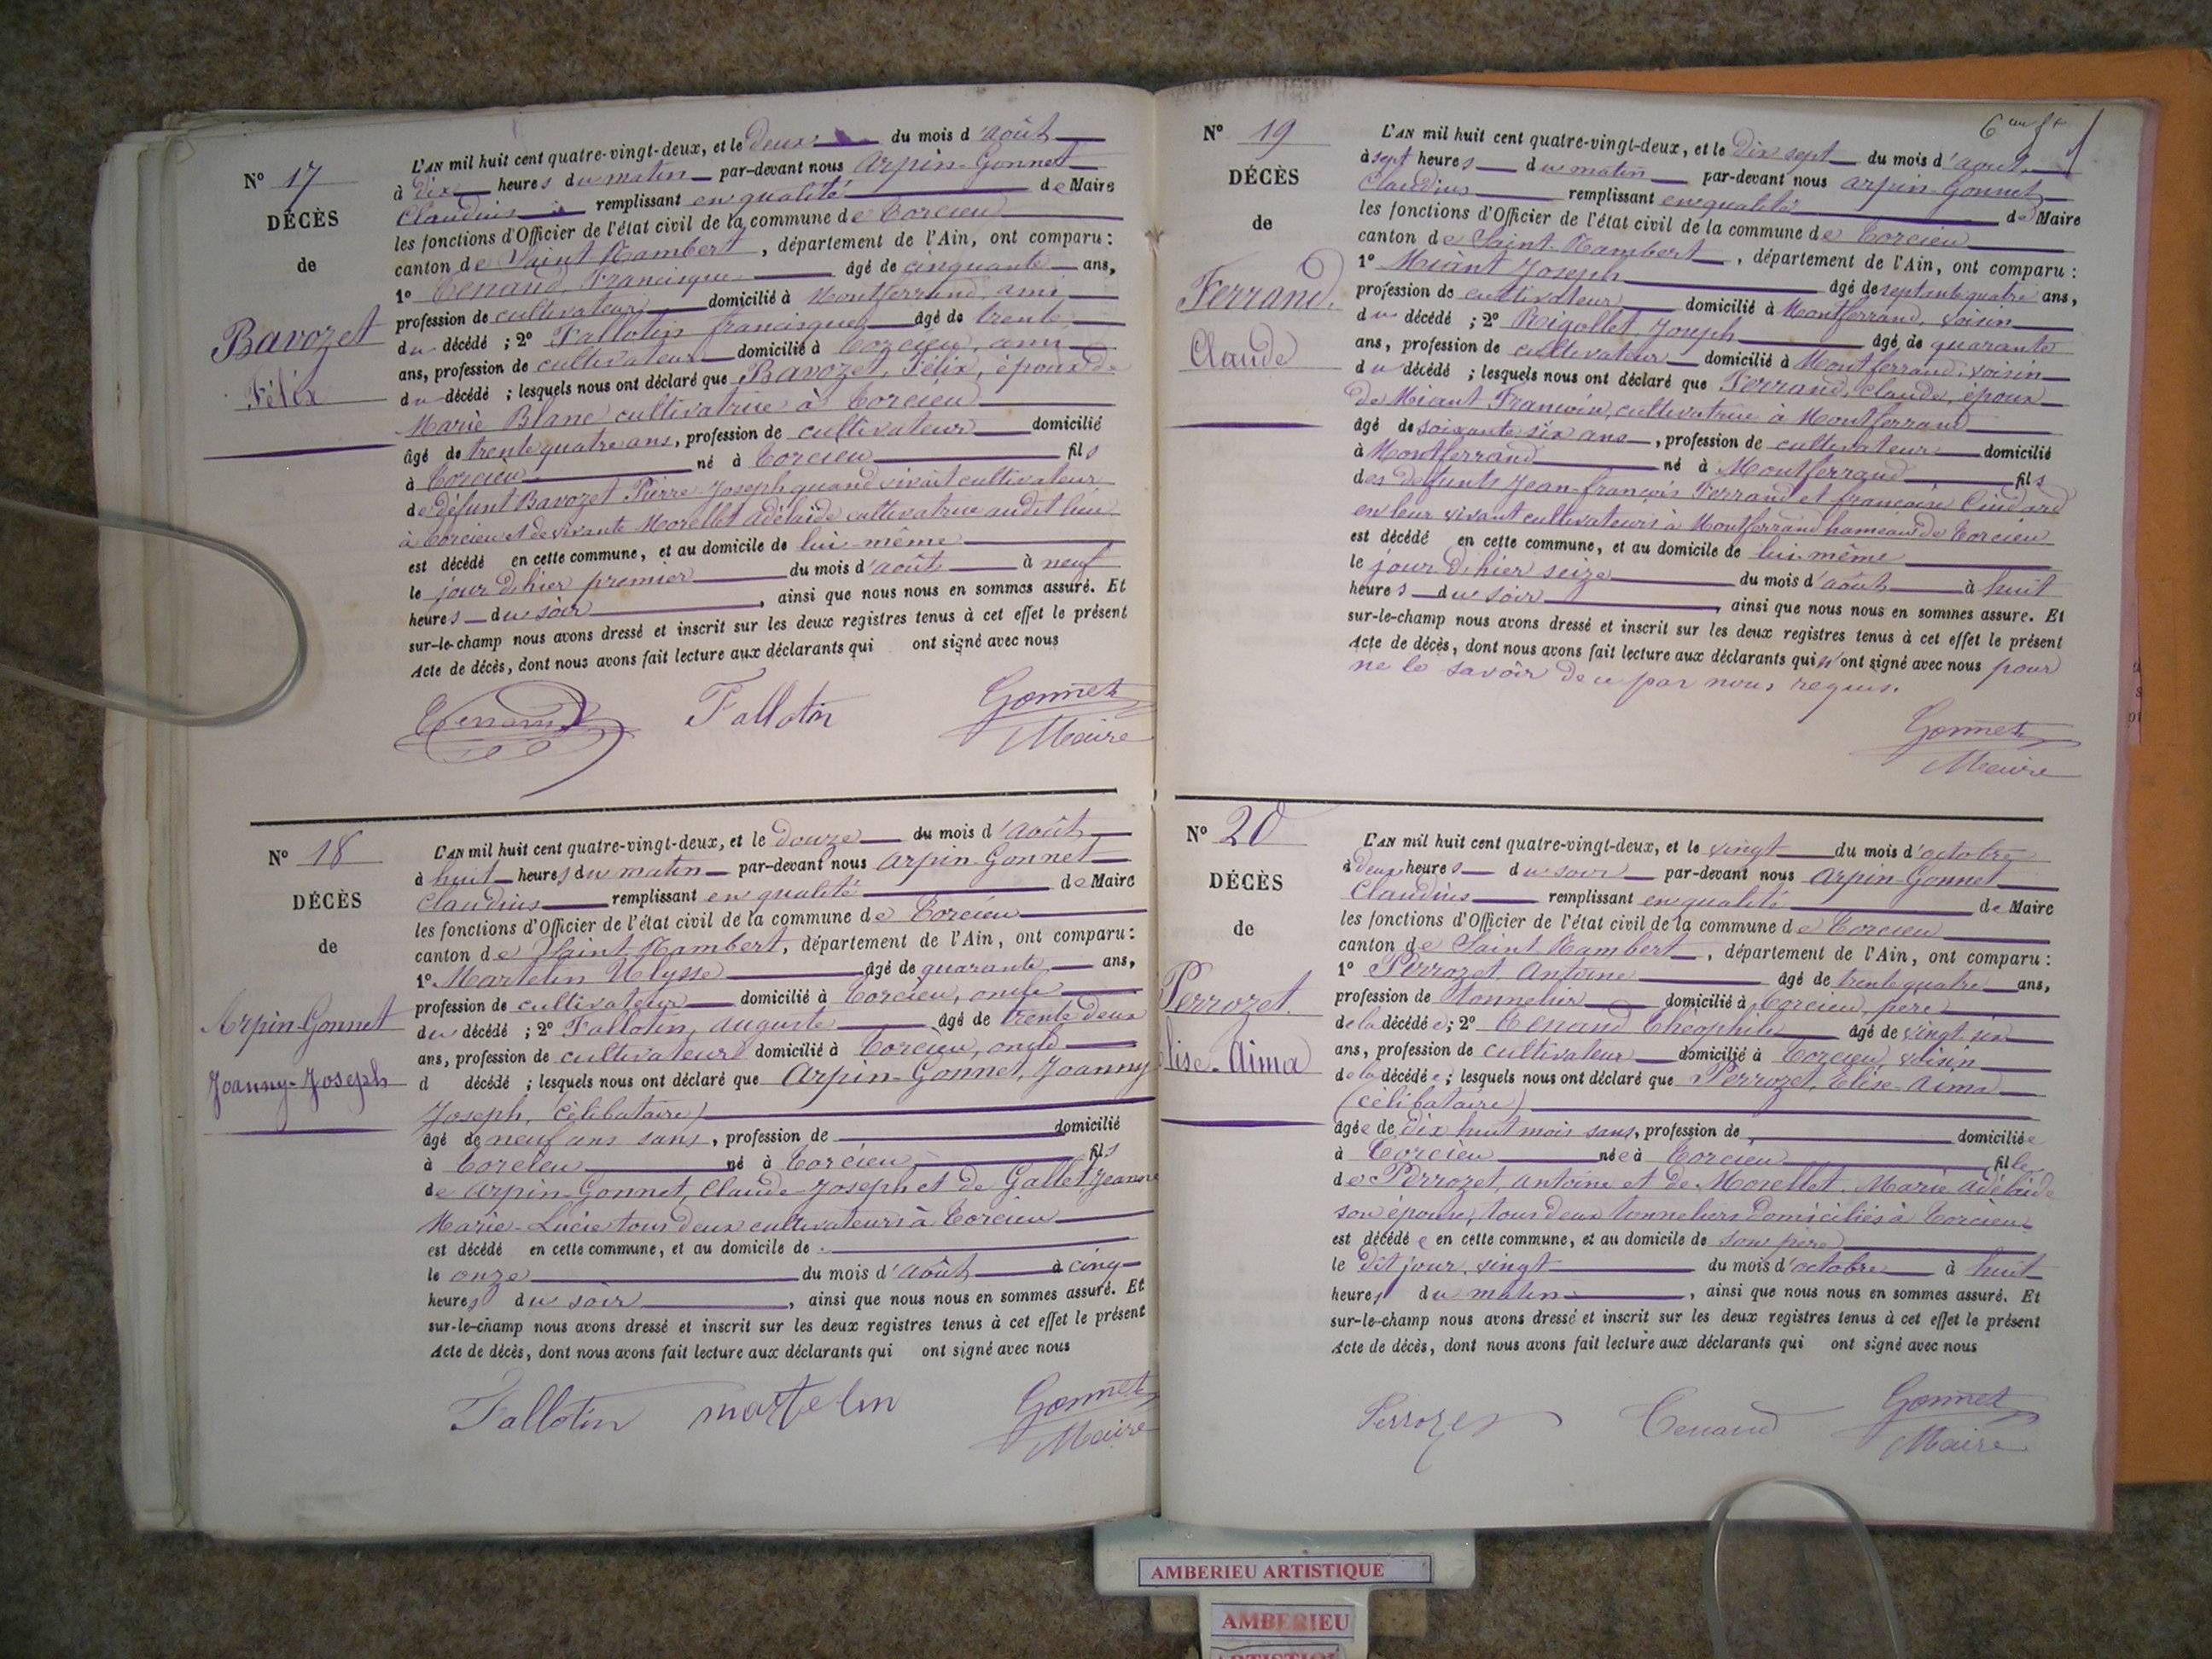 N° 17
DÉCÈS
de
Bavozet
Félix
L'AN mil huit cent quatre-vingt-deux, et le deux du mois d'août
à dix heures du matin par-devant nous Arpin-Gonnet
Claudius remplissant en qualité de Maire
les fonctions d'Officier de l'état civil de la commune de Torcieu
canton de Saint Rambert, département de l'Ain, ont comparu :
1° Tenand, Francisque âgé de cinquante ans,
profession de cultivateur domicilié à Montferrand, ami
du décédé ; 2° Fallotin francisque âgé de trente
ans, profession de cultivateur domicilié à Torcieu, ami
du décédé ; lesquels nous ont déclaré que Bavozet, Félix, époux de
Marie Blanc cultivatrice à Torcieu
âgé de trente quatre ans, profession de cultivateur domicilié
à Torcieu né à Torcieu fils
de défunt Bavozet Pierre Joseph quand vivait cultivateur
à Torcieu et de vivante Morellet Adélaide cultivatrice audit lieu
est décédé en cette commune, et au domicile de lui-même
le jour d'hier premier du mois d'août à neuf
heures du soir, ainsi que nous nous en sommes assuré. Et
sur-le-champ nous avons dressé et inscrit sur les deux registres tenus à cet effet le présent
Acte de décès, dont nous avons fait lecture aux déclarants qui ont signé avec nous
Tenand Fallotin Gonnet
Maire
N° 18
DÉCÈS
de
Arpin-Gonnet
Joanny-Joseph
L'AN mil huit cent quatre-vingt-deux, et le douze du mois d'août
à huit heures du matin par-devant nous Arpin-Gonnet
Claudius remplissant en qualité de Maire
les fonctions d'Officier de l'état civil de la commune de Torcieu
canton de Saint Rambert, département de l'Ain, ont comparu :
1° Martelin Ulysse âgé de quarante ans,
profession de cultivateur domicilié à Torcieu, oncle
du décédé ; 2° Fallotin, auguste âgé de trente deux
ans, profession de cultivateur domicilié à Torcieu, oncle
d décédé ; lesquels nous ont déclaré que Arpin-Gonnet, Joanny
Joseph, (célibataire)
âgé de neuf ans sans, profession de domicilié
à Torcieu né à Torcieu fils
de Arpin-Gonnet, Claude-Joseph et de Gallet Jeanne
Marie-Lucie tous deux cultivateurs à Torcieu
est décédé en cette commune, et au domicile de
le onze du mois d'août à cinq
heures du soir, ainsi que nous nous en sommes assuré. Et
sur-le-champ nous avons dressé et inscrit sur les deux registres tenus à cet effet le présent
Acte de décès, dont nous avons fait lecture aux déclarants qui ont signé avec nous
Fallotin martelin Gonnet
Maire
N° 19
DÉCÈS
de
Ferrand
Claude
L'AN mil huit cent quatre-vingt-deux, et le dix sept du mois d'août
à sept heures du matin par-devant nous Arpin-Gonnet
Claudius remplissant en qualité de Maire
les fonctions d'Officier de l'état civil de la commune de Torcieu
canton de Saint-Rambert, département de l'Ain, ont comparu :
1° Miant Joseph âgé de septante quatre ans,
profession de cultivateur domicilié à Montferrand, voisin
du décédé ; 2° Rigollet, Joseph âgé de quarante
ans, profession de cultivateur domicilié à Montferrand, voisin
du décédé ; lesquels nous ont déclaré que Ferrand, Claude, époux
de Miant Françoise, cultivatrice à Montferrand
âgé de soixante six ans, profession de cultivateur domicilié
à Montferrand né à Montferrand fils
des défunts Jean-françois Ferrand et françoise
en leur vivant cultivateurs à Montferrand hameau de Torcieu
est décédé en cette commune, et au domicile de lui-même
le jour d'hier seize du mois d'août à huit
heures du soir, ainsi que nous nous en sommes assuré. Et
sur-le-champ nous avons dressé et inscrit sur les deux registres tenus à cet effet le présent
Acte de décès, dont nous avons fait lecture aux déclarants qui n'ont signé avec nous pour
ne le savoir de ce par nous requis.
Gonnet
Maire
N° 20
DÉCÈS
de
Perrozet
Elise-Aima
L'AN mil huit cent quatre-vingt-deux, et le vingt du mois d'octobre
à deux heures du soir par-devant nous Arpin-Gonnet
Claudius remplissant en qualité de Maire
les fonctions d'Officier de l'état civil de la commune de Torcieu
canton de Saint Rambert, département de l'Ain, ont comparu :
1° Perrozet, Antoine âgé de trente quatre ans,
profession de tonnelier domicilié à Torcieu, père
de la décédée ; 2° Tenand Théophile âgé de vingt six
ans, profession de cultivateur domicilié à Torcieu, voisin
de la décédée ; lesquels nous ont déclaré que Perrozet, Elise-Aima
(célibataire)
âgée de dix huit mois sans, profession de domiciliée
à Torcieu née à Torcieu fille
de Perrozet, Antoine et de Morellet, Marie Adélaide
son épouse, tous deux tonneliers domiciliés à Torcieu
est décédée en cette commune, et au domicile de son père
le dit jour, vingt du mois d'octobre à huit
heures du matin, ainsi que nous nous en sommes assuré. Et
sur-le-champ nous avons dressé et inscrit sur les deux registres tenus à cet effet le présent
Acte de décès, dont nous avons fait lecture aux déclarants qui ont signé avec nous
Perrozet Tenand Gonnet
Maire
AMBERIEU ARTISTIQUE
AMBERIEU
ARTISTIQUE